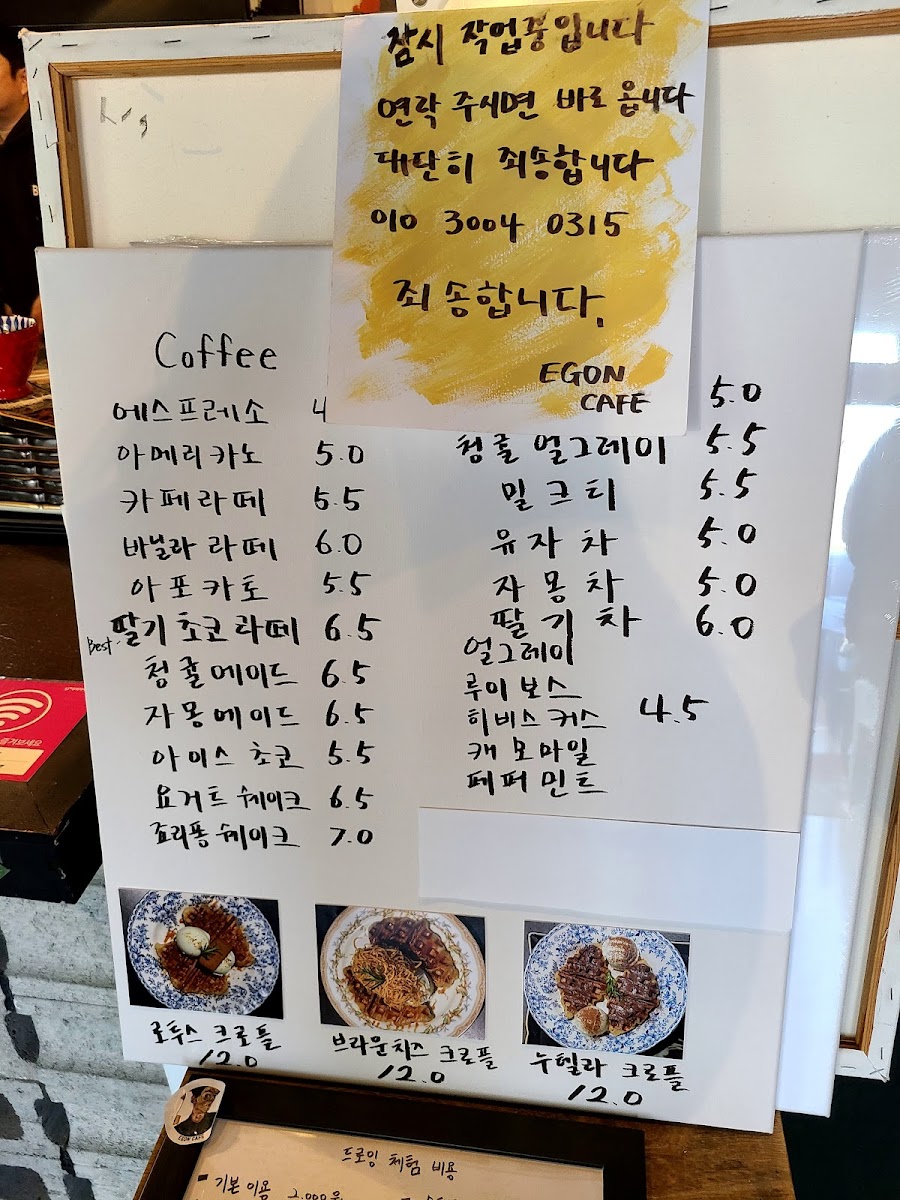 잠시 작업중입니다
연락 주시면 바로 옵니다
대단히 죄송합니다
010 3004 0315
죄송합니다.
EGON
CAFE
Coffee
에스프레소 4
아메리카노 5.0
카페라떼 5.5
바닐라 라떼 6.0
아포카토 5.5
Best 딸기 초코 라떼 6.5
청귤에이드 6.5
자몽에이드 6.5
아이스 초코 5.5
요거트 쉐이크 6.5
죠리퐁 쉐이크 7.0
5.0
청귤 얼그레이 5.5
밀크티 5.5
유자차 5.0
자몽차 5.0
딸기차 6.0
얼그레이
루이보스
히비스커스 4.5
캐모마일
페퍼민트
로투스 크로플
12.0
브라운치즈 크로플
12.0
누텔라 크로플
12.0
EGON CAFE
드로잉 체험 비용
기본 이용 2,000원